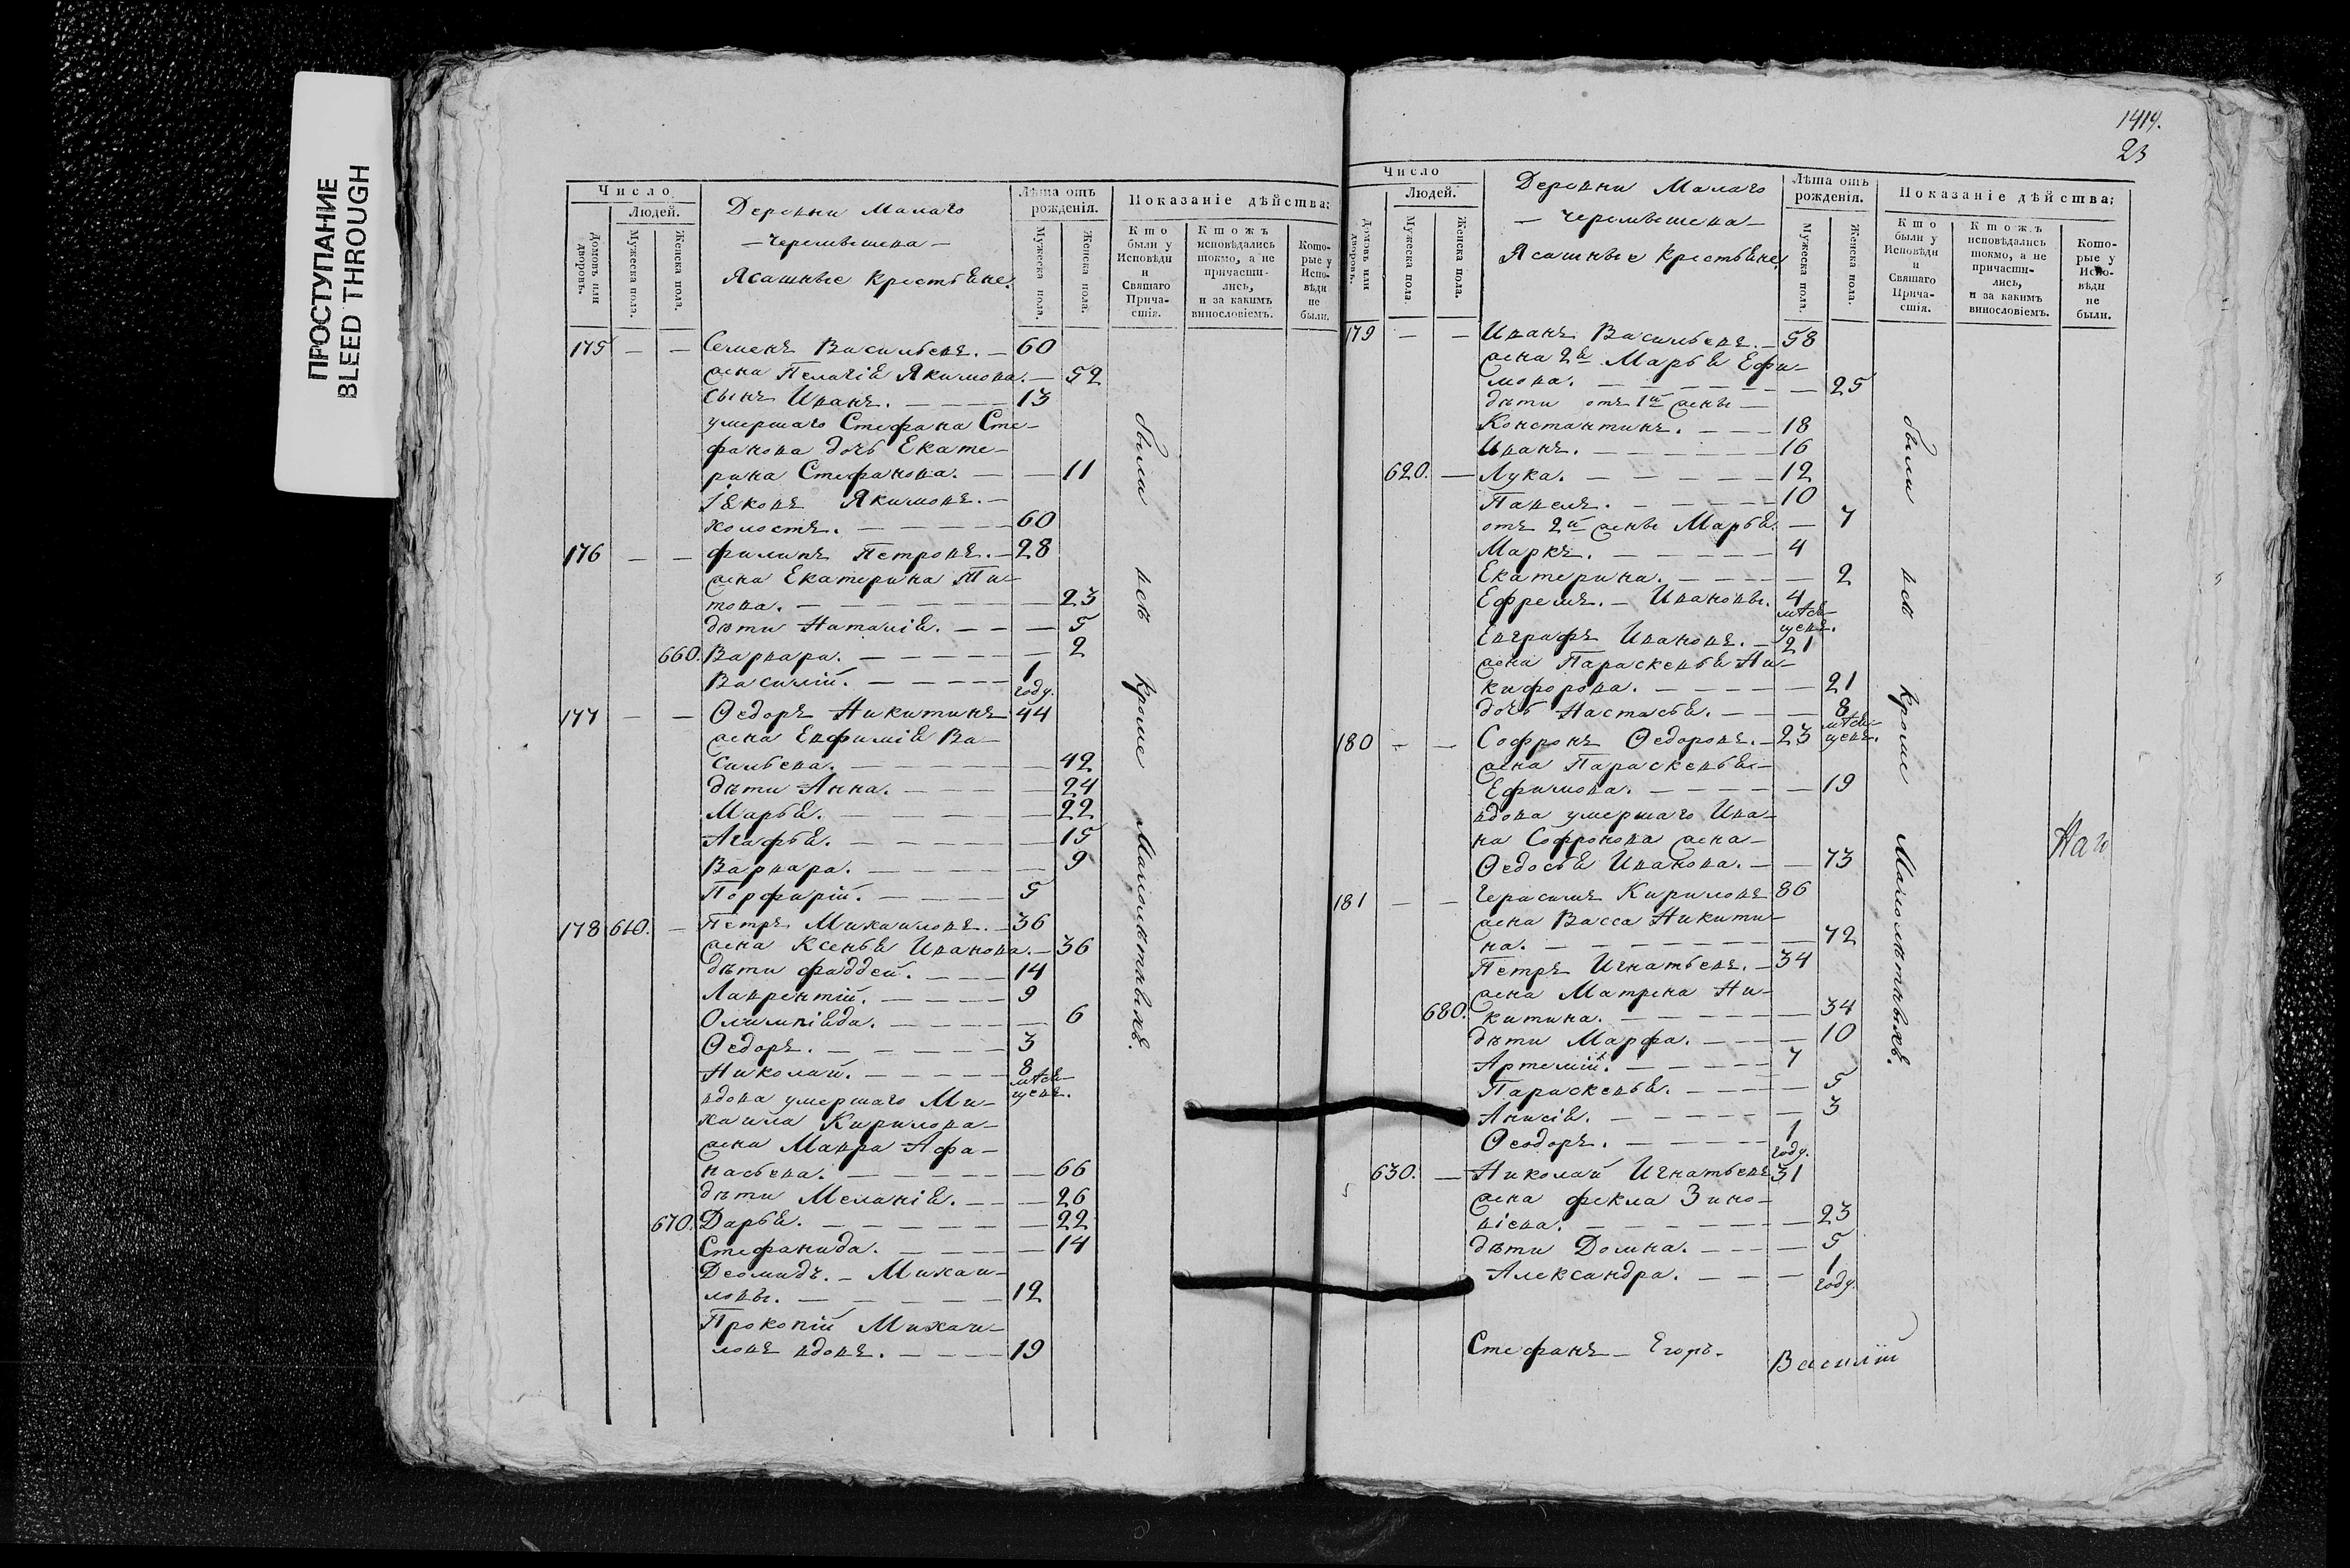 ПРОСТУПАНИЕ
BLEED THROUGH
Число
Людей.
Домовъ или дворовъ.
Мужеска пола.
Женска пола.
Деревни Малаго
— Черемшена —
Ясашные крестьяне.
Лѣта отъ рожденія.
Мужеска пола.
Женска пола.
Показаніе дѣйства:
Кто были у Исповѣди и Святаго Причастія.
Ктожъ исповѣдались токмо, а не причастились, и за какимъ винословіемъ.
Которые у Исповѣди не были.
175 — — Семенъ Васильевъ. — 60
жена Пелагія Якимова. — 52
сынъ Иванъ. — 13
умершаго Стефана Сте-
фанова дочь Екате-
рина Стефанова. — — 11
Іяковъ Якимовъ. —
холостъ. — 60
176 — — Филипъ Петровъ. — 28
жена Екатерина Ти-
това. — — 23
дѣти Наталія. — — 5
660. Варвара. — — 2
Василій. — 1 году.
177 — — Ѳедоръ Никитинъ 44
жена Евфимія Ва-
сильева. — — 42
дѣти Анна. — — 24
Марья. — — 22
Агафья. — — 15
Варвара. — — 9
Порфирій. — 5
178 610. — Петръ Михаиловъ. — 36
жена Ксенья Иванова. — 36
дѣти Фаддей. — 14
Лаврентій. — 9
Олимпіяда. — — 6
Ѳедоръ. — 3
Николай. — 8 мѣся-
вдова умершаго Ми- цевъ.
хаила Кирилова —
жена Мавра Афа-
насьева. — — 66
дѣти Меланія. — — 26
670. Дарья. — — 22
Стефанида. — — 14
Деомидъ. — Михаи-
ловы. — 12
Прокопій Михаи-
ловъ вдовъ. — 19
были всѣ кроме малолѣтныхъ.
1414.
23
Число
Людей.
Домовъ или дворовъ.
Мужеска пола.
Женска пола.
Деревни Малаго
— Черемшена —
Ясашные крестьяне.
Лѣта отъ рожденія.
Мужеска пола.
Женска пола.
Показаніе дѣйства:
Кто были у Исповѣди и Святаго Причастія.
Ктожъ исповѣдались токмо, а не причастились, и за какимъ винословіемъ.
Которые у Исповѣди не были.
179 — — Иванъ Васильевъ. — 58
жена 2я Марья Ефи-
мова. — — 25
дѣти отъ 1й жены —
Константинъ. — 18
Иванъ. — 16
620. — Лука. — 12
Павелъ. — 10
отъ 2й жены Марья. — 7
Маркъ. — 4
Екатерина. — — 2
Ефремъ. — Ивановы. 4 мѣся-
цевъ.
Евграфъ Ивановъ. — 21
жена Параскевья Ни-
кифорова. — — 21
дочь Настасья. — — 8 мѣся-
цевъ.
180 — — Софронъ Ѳедоровъ. — 23
жена Параскевья —
Ефимова. — — 19
вдова умершаго Ива-
на Софронова жена —
Ѳедосья Иванова. — — 73
181 — — Герасимъ Кириловъ 86
жена Васса Никити-
на. — — 72
Петръ Игнатьевъ. — 34
жена Матрена Ни-
680. китина. — — 34
дѣти Марфа. — — 10
Артемій. — 7
Параскевья. — — 5
Анисія. — — 3
Ѳеодоръ. — 1 году.
630. — Николай Игнатьевъ 31
жена Фекла Зино-
віева. — — 23
дѣти Домна. — — 5
Александра. — — 1 году.
были всѣ кроме малолѣтныхъ.
Стефанъ — Егоръ. Василій